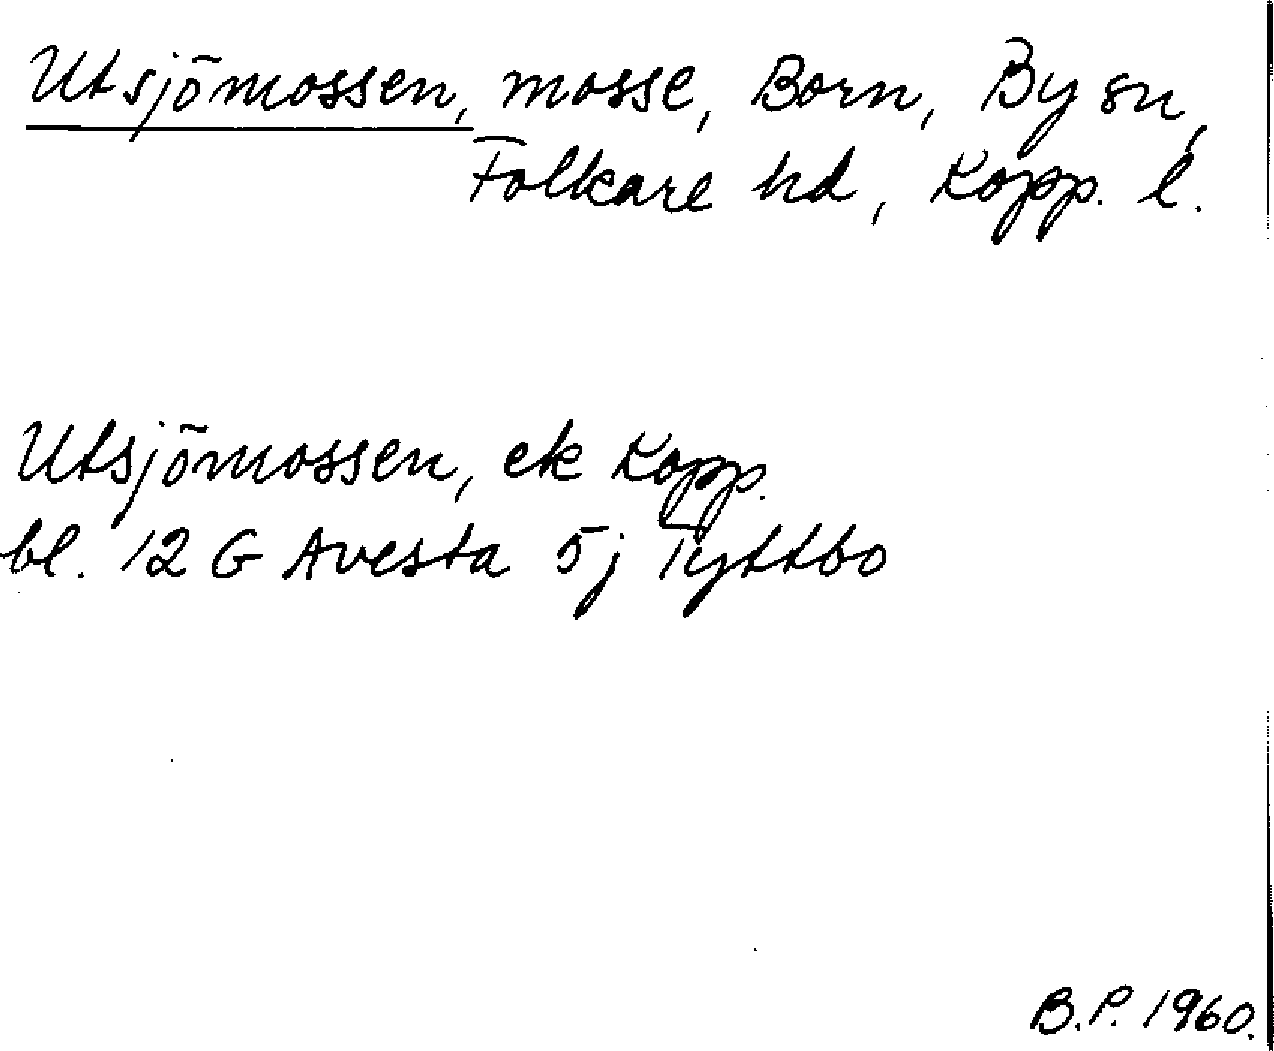 Utsjömossen, mosse, Born, By sn,
Folkare hd, Kopp. l.
Utsjömossen, ek Kopp.
bl. 12 G Avesta 5j Tyttbo
B.P. 1960.